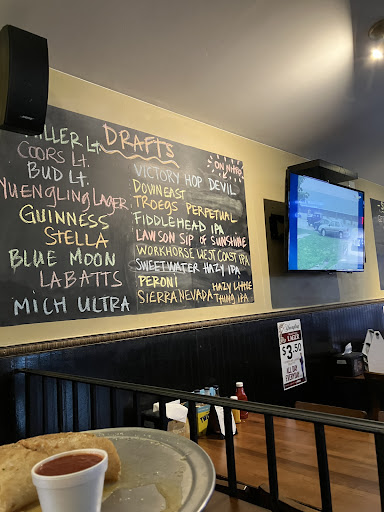 DRAFTS
MILLER LT.
COORS LT.
BUD LT.
YUENGLING LAGER
GUINNESS
STELLA
BLUE MOON
LABATTS
MICH ULTRA
ON NITRO
VICTORY HOP DEVIL
DOWNEAST
TROEGS PERPETUAL
FIDDLEHEAD IPA
LAWSON SIP OF SUNSHINE
WORKHORSE WEST COAST IPA
SWEETWATER HAZY IPA
PERONI
SIERRA NEVADA HAZY LITTLE THING IPA
$3.50
ALL DAY
EVERYDAY